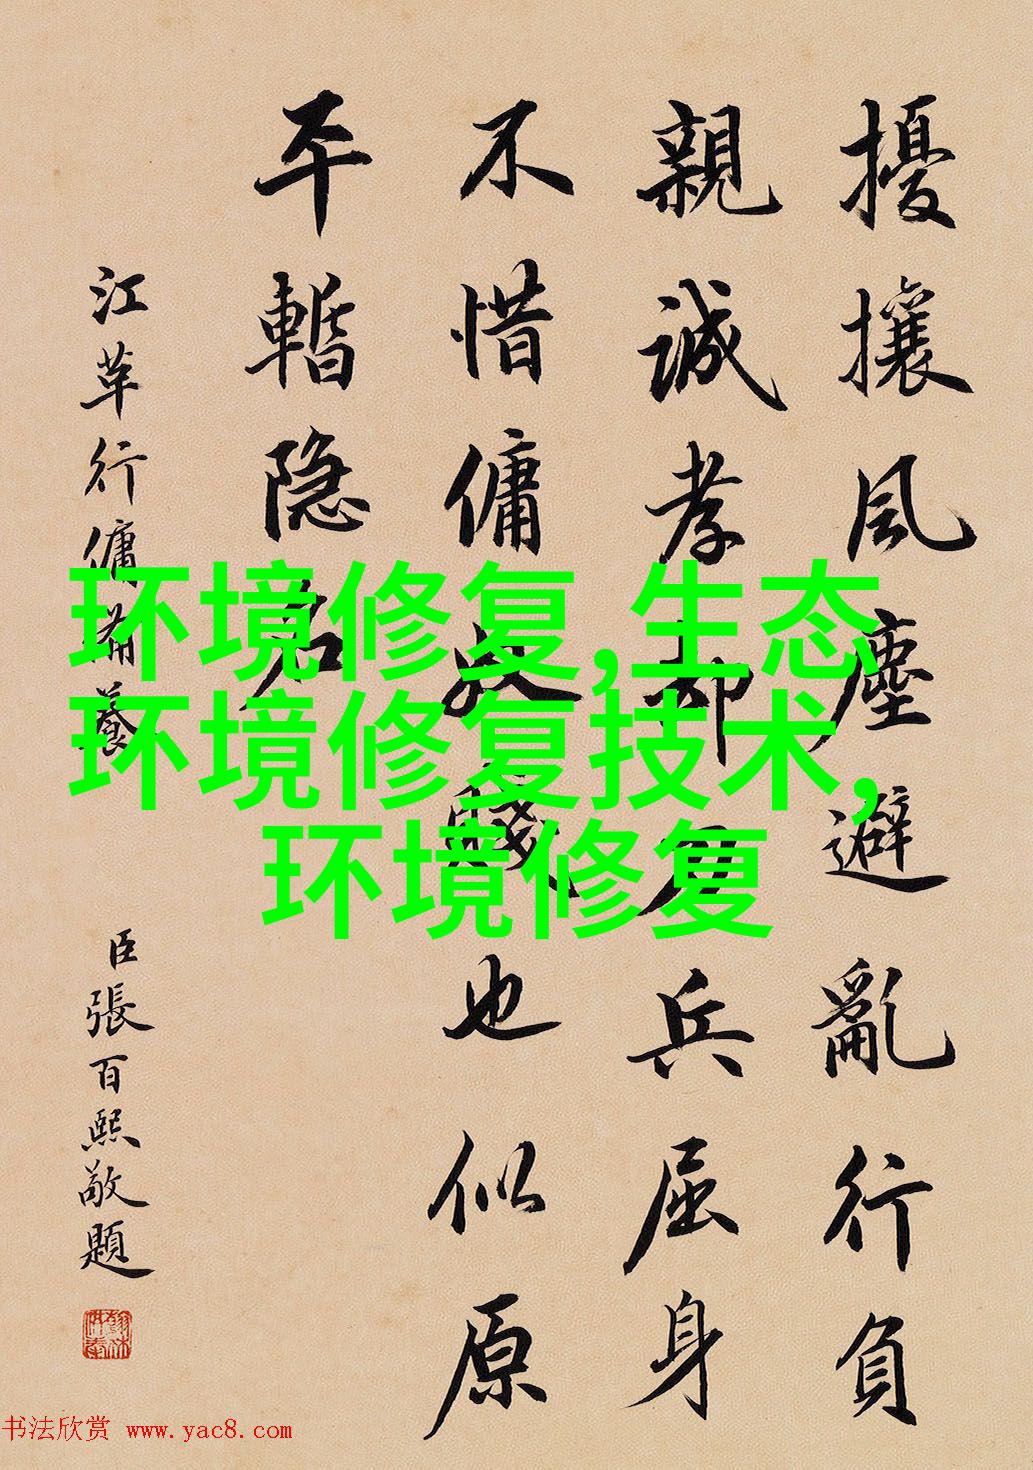 擾攘風塵避亂行負
親誠孝却刀兵屈身
不惜傭於賤也似原
平暫隐名
江革行傭備養
臣張百熙敬題
环境修复,生态
环境修复技术,
环境修复
书法欣赏 www.yac8.com